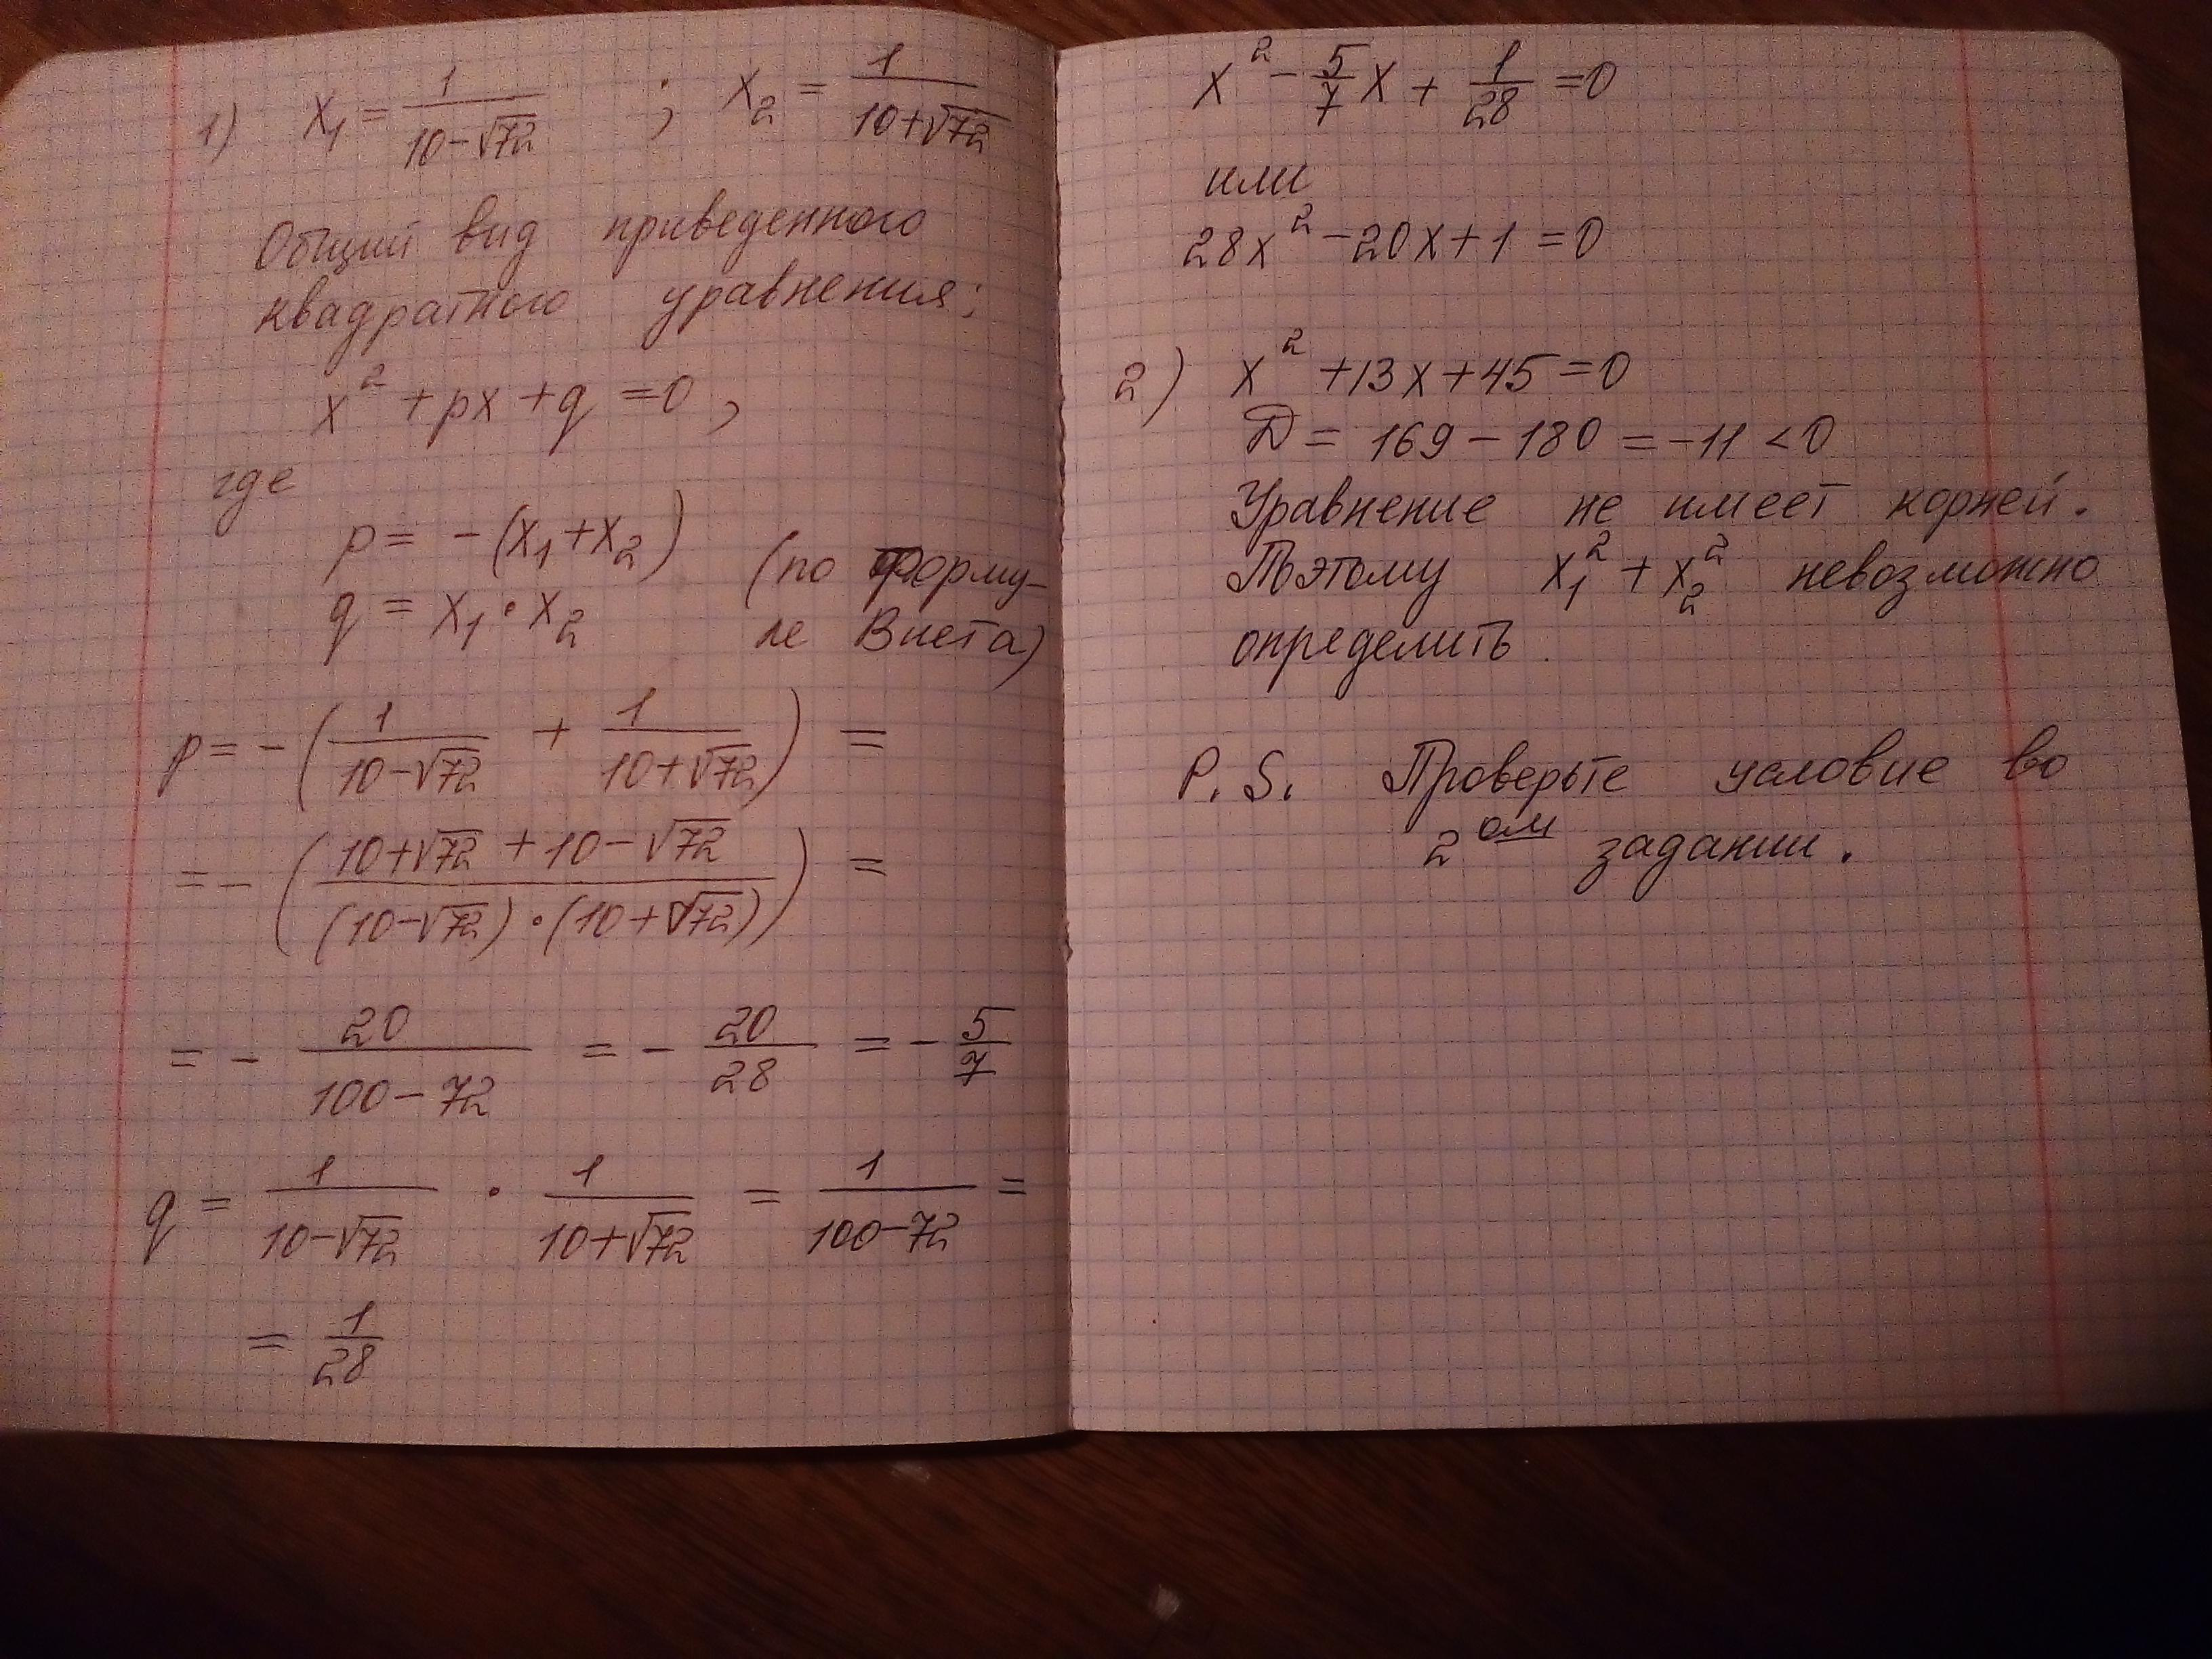 1) x₁ = 1/(10-√72) ; x₂ = 1/(10+√72)
Общий вид приведенного
квадратного уравнения:
x² + px + q = 0,
где
p = -(x₁+x₂)
q = x₁·x₂
(по форму-
ле Виета)
p = -(1/(10-√72) + 1/(10+√72)) =
= -((10+√72 + 10-√72)/((10-√72)·(10+√72))) =
= - 20/(100-72) = - 20/28 = - 5/7
q = 1/(10-√72) · 1/(10+√72) = 1/(100-72) =
= 1/28
x² - 5/7x + 1/28 = 0
или
28x² - 20x + 1 = 0
2) x² + 13x + 45 = 0
D = 169 - 180 = -11 < 0
Уравнение не имеет корней.
Поэтому x₁² + x₂² невозможно
определить.
P.S. Проверьте условие во
2ом задании.